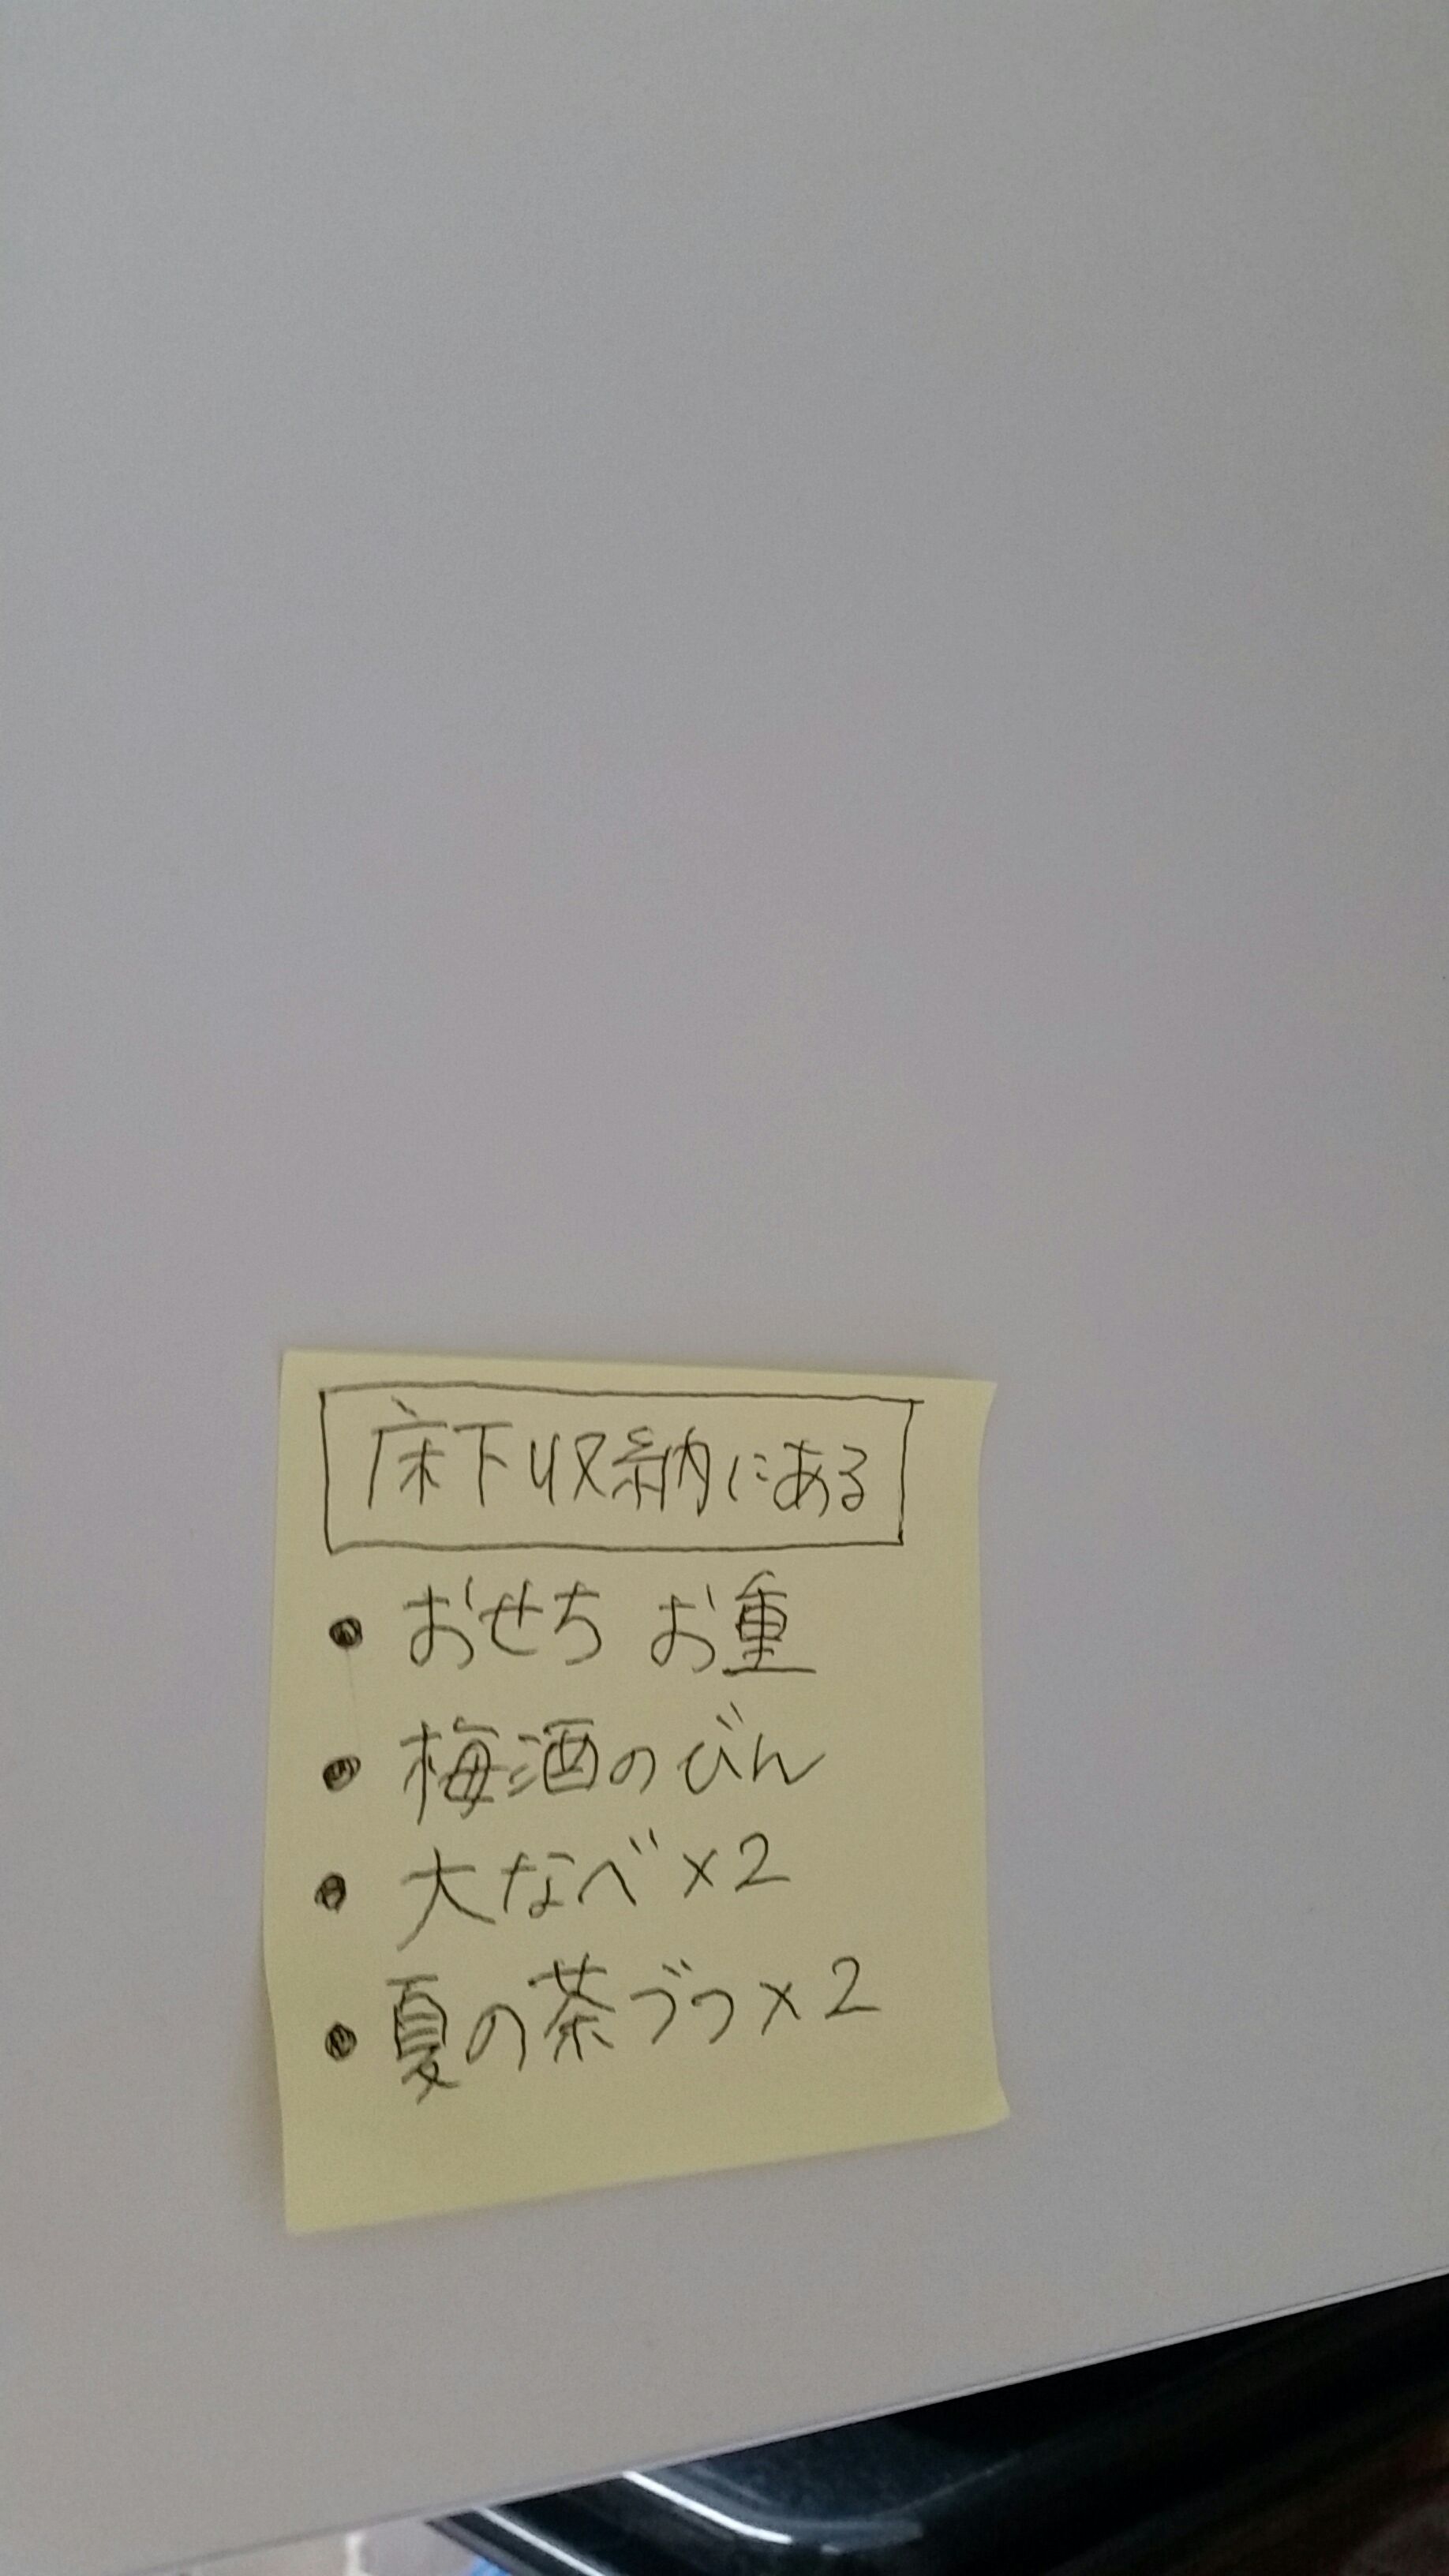 床下収納にある
• おせち お重
• 梅酒のびん
• 大なべ×2
• 夏の茶ブつ×2